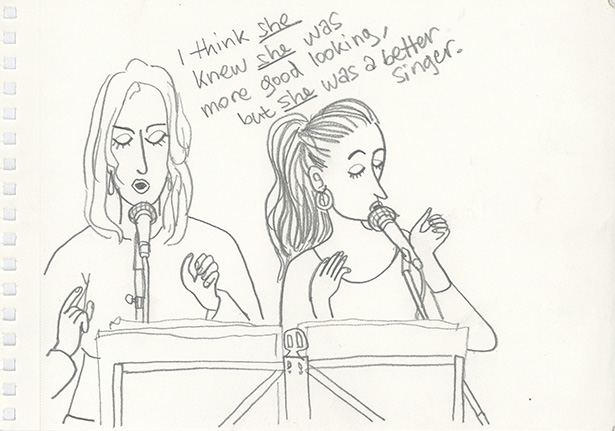 I think she
knew she was
more good looking,
but she was a better
singer.